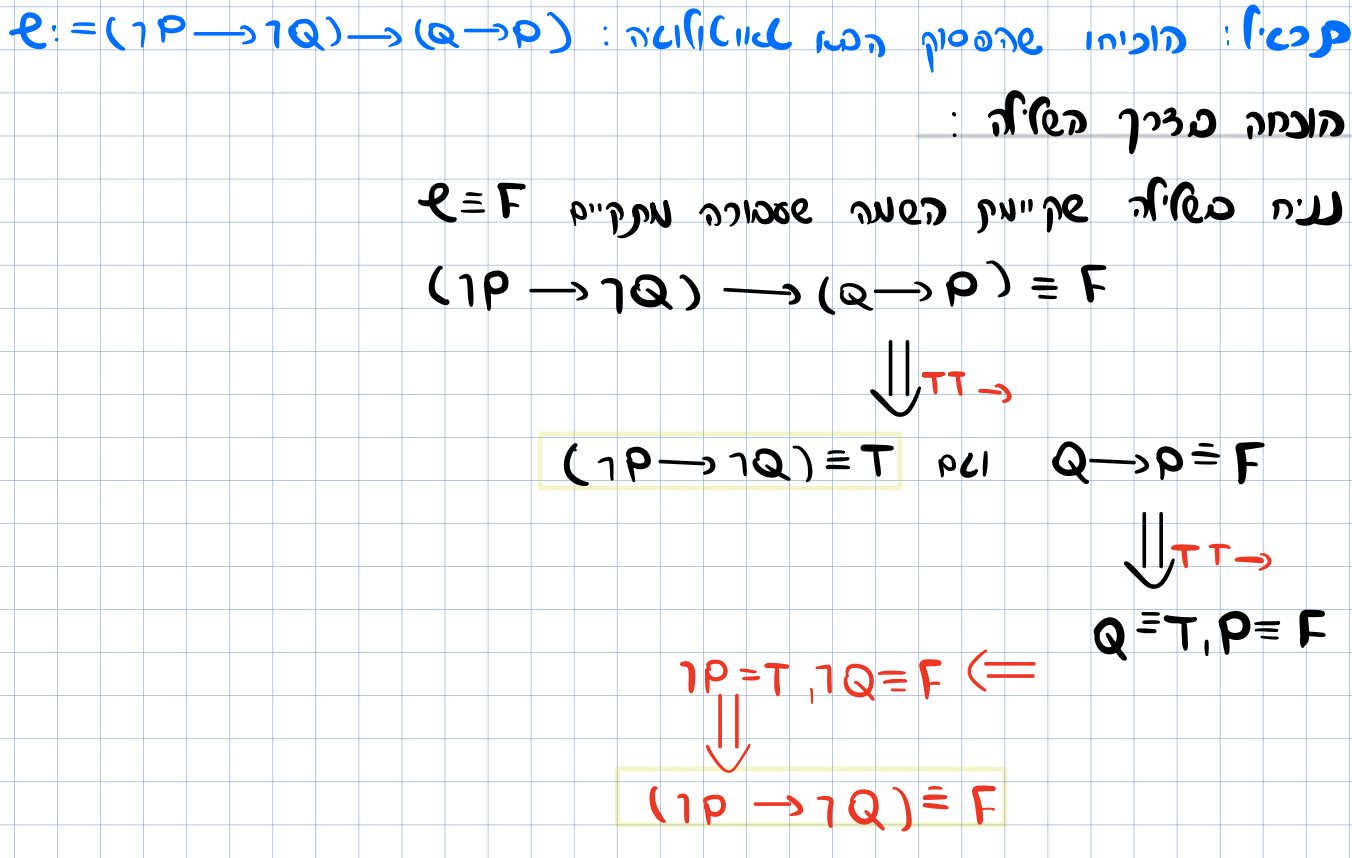 תרגיל: הוכיחו שהפסוק הבא טאוטולוגיה: φ:=(¬P→¬Q)→(Q→P)
הוכחה בדרך השלילה:
נניח בשלילה שקיימת השמה שעבורה מתקיים φ≡F
(¬P→¬Q)→(Q→P)≡F
⇓ TT→
Q→P≡F וגם (¬P→¬Q)≡T
⇓ TT→
Q≡T, P≡F
⇐ ¬P≡T, ¬Q≡F
⇓
(¬P→¬Q)≡F